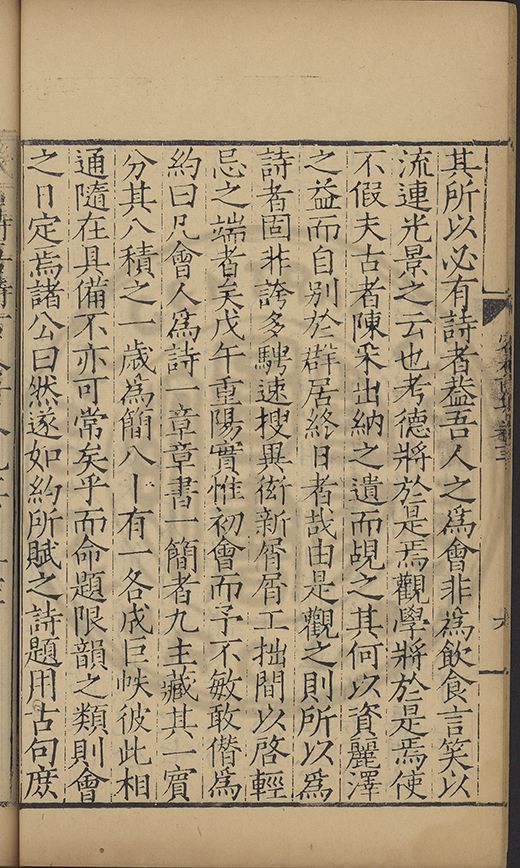 其所以必有詩者葢吾人之爲會非爲飲食言笑以
流連光景之云也考德將於是焉觀學將於是焉使
不假夫古者陳采出納之遺而覘之其何以資麗澤
之益而自別於群居終日者哉由是觀之則所以爲
詩者固非誇多騁速搜異衒新屑屑工拙間以啓輕
忌之端者矣戊午重陽實惟初會而予不敏敢僭爲
約曰凡會人爲詩一章章書一簡者九主藏其一賓
分其八積之一歲爲簡八十有一各成巨帙彼此相
通隨在具備不亦可常矣乎而命題限韻之類則會
之日定焉諸公曰然遂如約所賦之詩題用古句庶